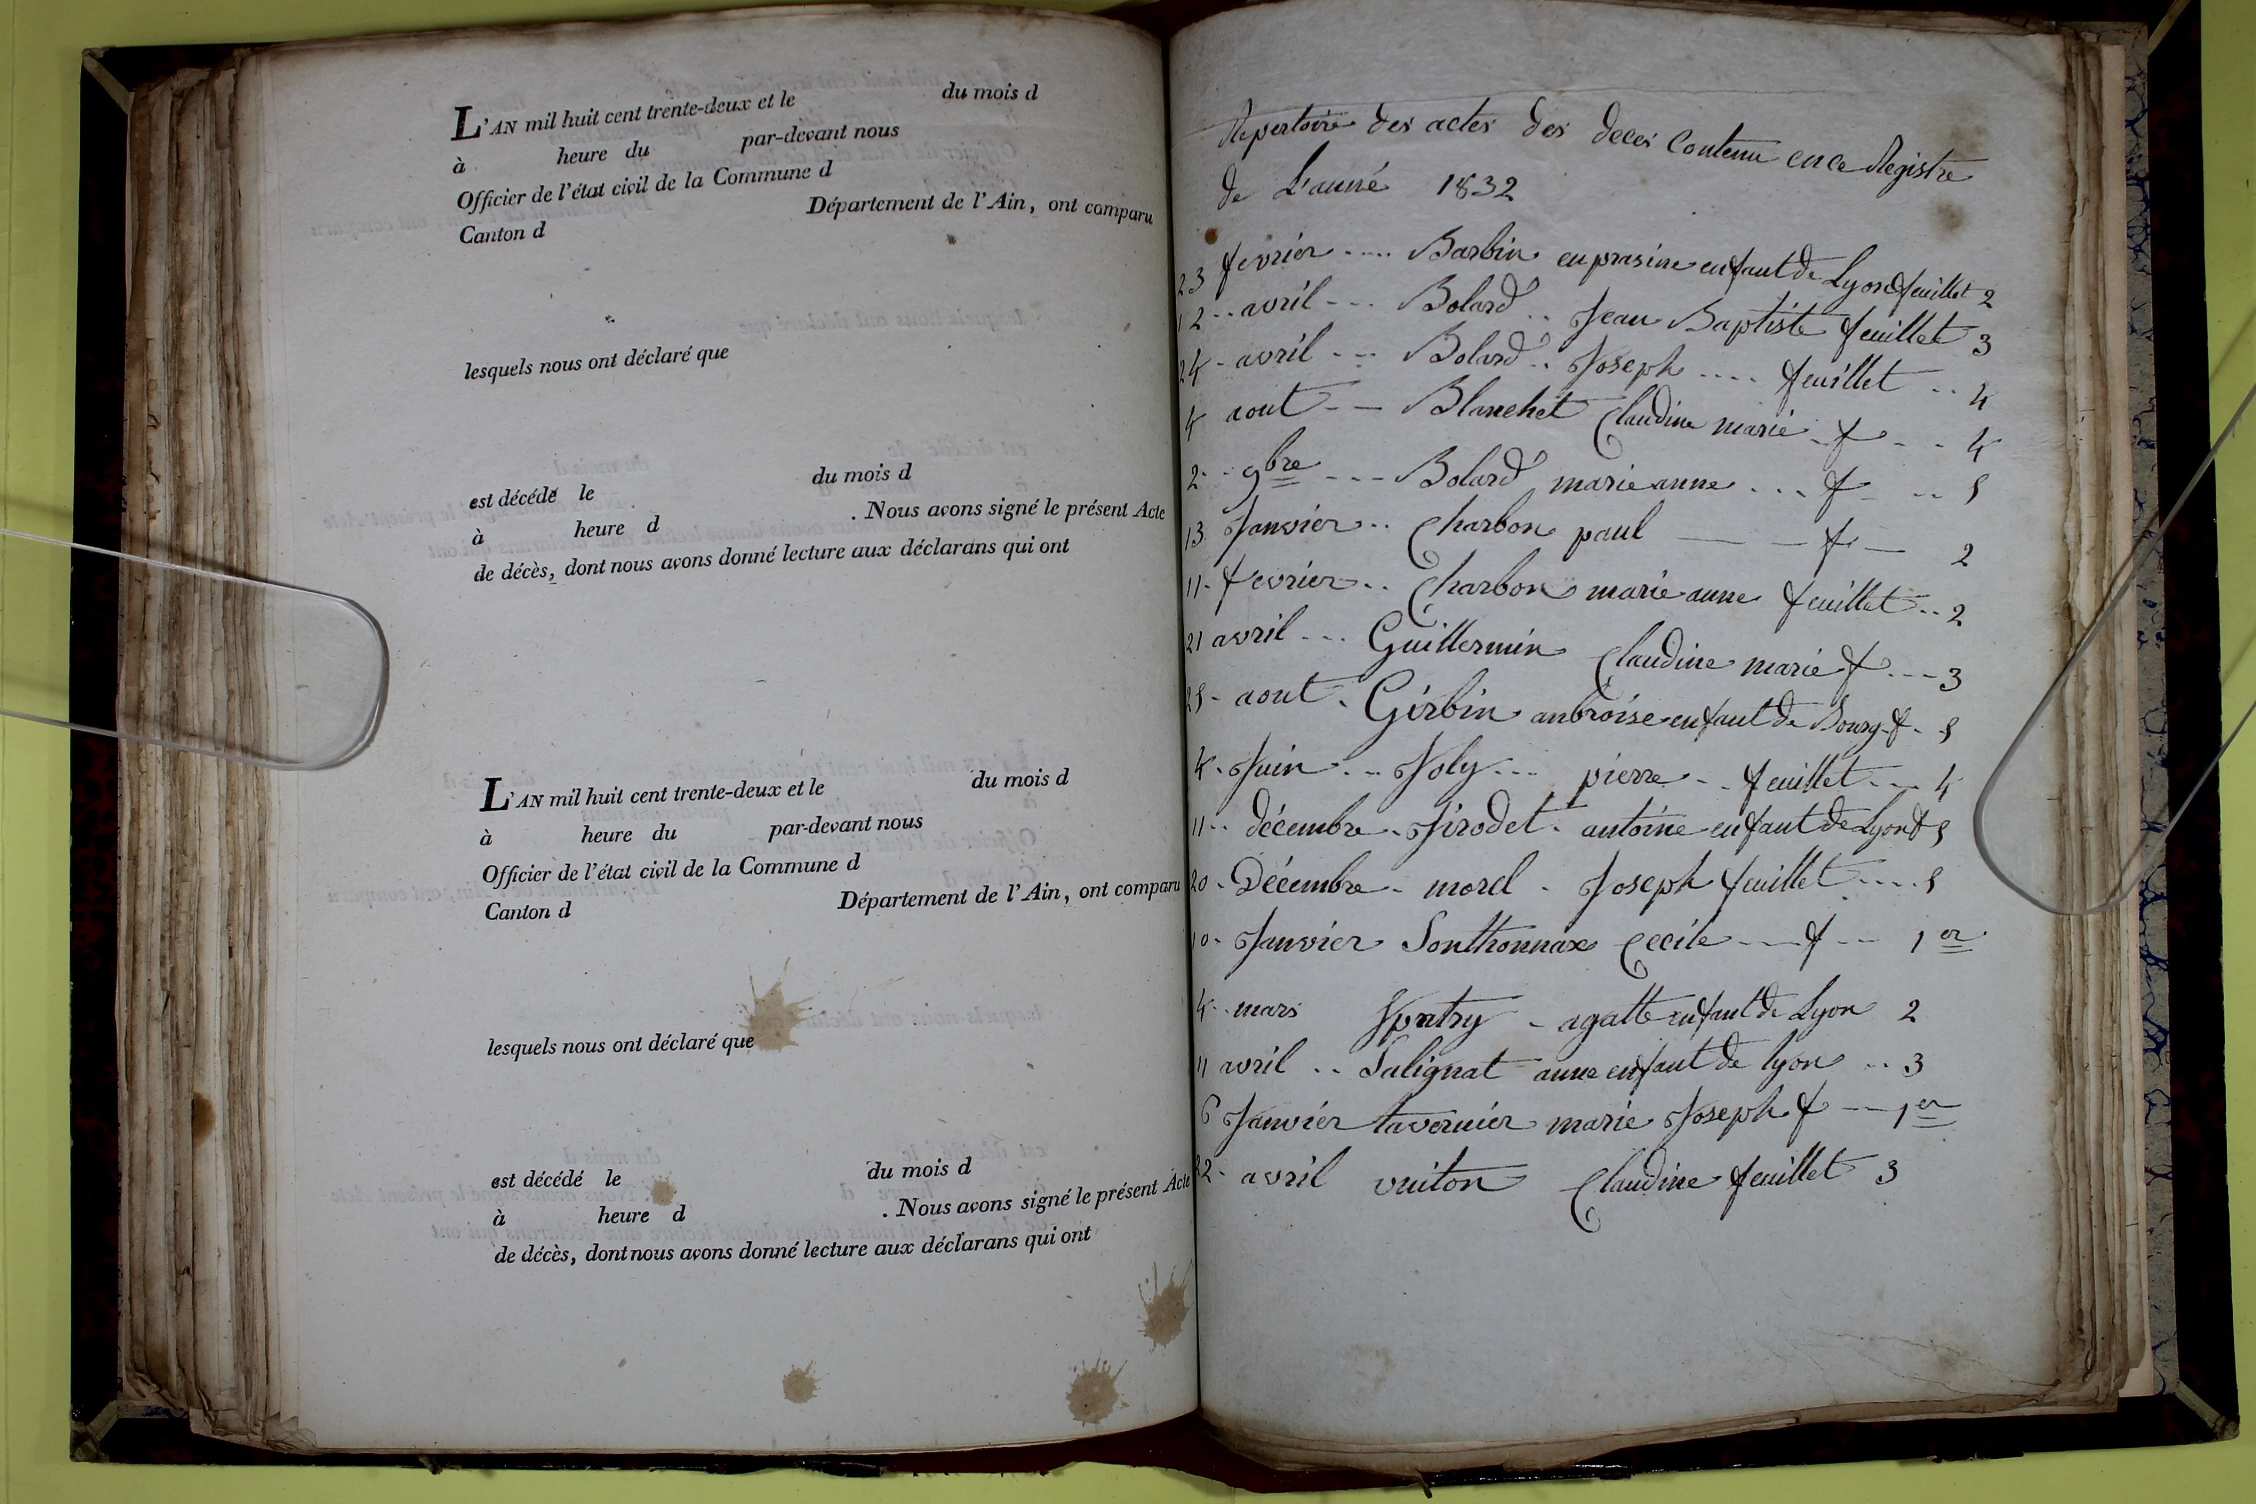 L'AN mil huit cent trente-deux et le du mois d
à heure du par-devant nous
Officier de l'état civil de la Commune d
Canton d Département de l'Ain, ont comparu
lesquels nous ont déclaré que
est décédé le du mois d
à heure d . Nous avons signé le présent Acte
de décès, dont nous avons donné lecture aux déclarans qui ont
L'AN mil huit cent trente-deux et le du mois d
à heure du par-devant nous
Officier de l'état civil de la Commune d
Canton d Département de l'Ain, ont comparu
lesquels nous ont déclaré que
est décédé le du mois d
à heure d . Nous avons signé le présent Acte
de décès, dont nous avons donné lecture aux déclarans qui ont
Repertoire des actes des deces Contenu en ce Registre
de L'anné 1832
23 fevrier .... Barbin euprasine enfant de Lyon feuillet 2
12 .. avril --- Bolard .. Jean Baptiste feuillet 3
24 - avril --- Bolard .. Joseph .... feuillet .. 4
4 aout -- Blanchet Claudine marie - f - - 4
2 - - 9bre --- Bolard marie anne ... f - .. 5
13 Janvier .. Charbon paul — — f — 2
11 - fevrier .. Charbon marie anne feuillet .. 2
21 avril --- Guillermin Claudine marie f --- 3
25 - aout - Girbin anbroise enfant de Bourg - f - 5
4 - Juin --- Joly --- pierre - - feuillet --- 4
11 .. décembre - Jirodet - antoine enfant de Lyon f 5
20 - Décembre - morel - Joseph feuillet .... 5
10 - Janvier Sonthonnax Cecile --- f -- 1er
4 - mars - agatte enfant de Lyon 2
11 avril .. Salignat anne enfant de lyon .. 3
6 Janvier tavernier marie Joseph f --- 1er
22 - avril vuiton Claudine feuillet 3